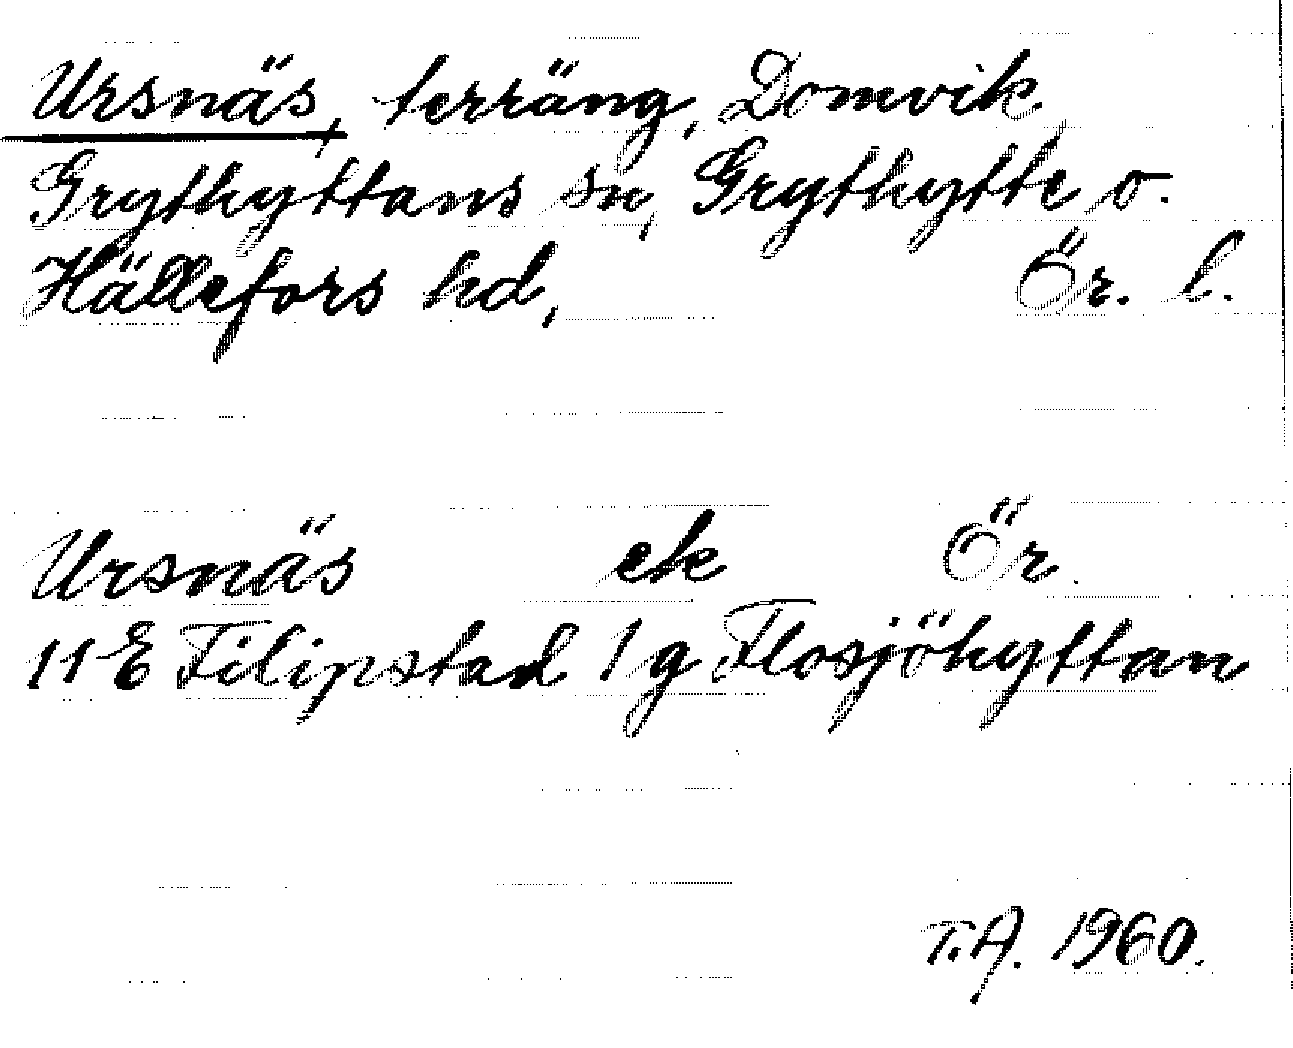 Ursnäs, terräng, Domvik,
Grythyttans sn, Grythytte o.
Hällefors hd, Ör. l.
Ursnäs ek Ör.
11E Filipstad 1g Flosjöhyttan
T.A. 1960.